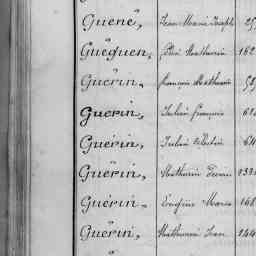 Guené, Jean Marie Joseph 25
Guéguen, Mathurin 162
Guérin, François Mathurin 58
Guerin, Julien François 61
Guérin, Julien Célestin 64
Guérin, Mathurin
Guérin, Eugène Marie 168
Guérin, Mathurin Jean 144